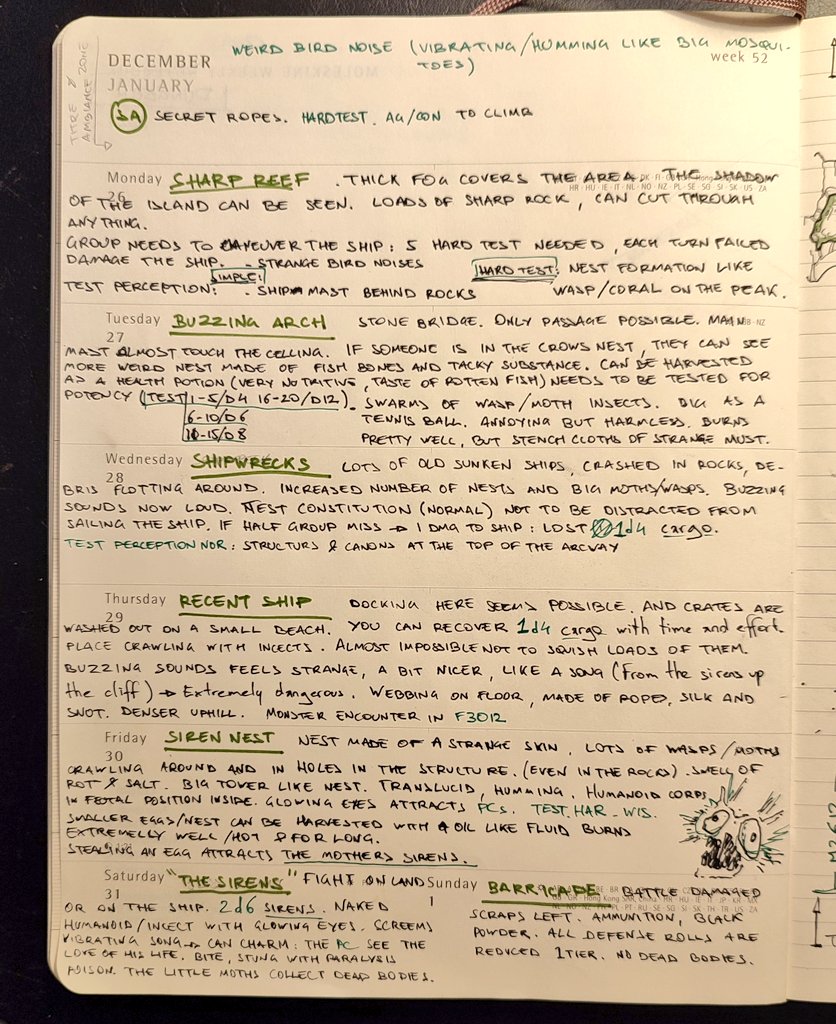 WEIRD BIRD NOISE (VIBRATING/HUMMING LIKE BIG MOSQUI-
TOES)
DECEMBER
JANUARY
week 52
AMBIANCE ZONE
3A SECRET ROPES. HARDTEST. AG/CON TO CLIMB
Monday SHARP REEF . THICK FOG COVERS THE AREA. THE SHADOW
26
OF THE ISLAND CAN BE SEEN. LOADS OF SHARP ROCK, CAN CUT THROUGH
ANYTHING.
GROUP NEEDS TO MANEUVER THE SHIP: 5 HARD TEST NEEDED, EACH TURN FAILED
DAMAGE THE SHIP. - STRANGE BIRD NOISES HARD TEST: NEST FORMATION LIKE
SIMPLE:
TEST PERCEPTION: - SHIP MAST BEHIND ROCKS WASP/CORAL ON THE PEAK.
Tuesday BUZZING ARCH STONE BRIDGE. ONLY PASSAGE POSSIBLE. MAIN
27
MAST ALMOST TOUCH THE CELLING. IF SOMEONE IS IN THE CROWS NEST, THEY CAN SEE
MORE WEIRD NEST MADE OF FISH BONES AND TACKY SUBSTANCE. CAN BE HARVESTED
AS A HEALTH POTION (VERY NUTRITIVE, TASTE OF ROTTEN FISH) NEEDS TO BE TESTED FOR
POTENCY (TEST 1-5/D4 16-20/D12). SWARMS OF WASP/MOTH INSECTS. BIG AS A
6-10/D6 TENNIS BALL. ANNOYING BUT HARMLESS. BURNS
10-15/D8 PRETTY WELL, BUT STENCH CLOTHS OF STRANGE MUST.
Wednesday SHIPWRECKS LOTS OF OLD SUNKEN SHIPS, CRASHED IN ROCKS, DE-
28
BRIS FLOTTING AROUND. INCREASED NUMBER OF NESTS AND BIG MOTHS/WASPS. BUZZING
SOUNDS NOW LOUD. TEST CONSTITUTION (NORMAL) NOT TO BE DISTRACTED FROM
SAILING THE SHIP. IF HALF GROUP MISS → 1 DMG TO SHIP: LOST 1d4 cargo.
TEST PERCEPTION NOR: STRUCTURS & CANONS AT THE TOP OF THE ARCWAY
Thursday RECENT SHIP DOCKING HERE SEEMS POSSIBLE. AND CRATES ARE
29
WASHED OUT ON A SMALL BEACH. YOU CAN RECOVER 1d4 cargo with time and effort.
PLACE CRAWLING WITH INSECTS. ALMOST IMPOSSIBLE NOT TO SQUISH LOADS OF THEM.
BUZZING SOUNDS FEELS STRANGE, A BIT NICER, LIKE A SONG (From the sirens up
the cliff) → Extremely dangerous. WEBBING ON FLOOR, MADE OF ROPES, SILK AND
SNOT. DENSER UPHILL. MONSTER ENCOUNTER IN
Friday SIREN NEST NEST MADE OF A STRANGE SKIN, LOTS OF WASPS/MOTHS
30
CRAWLING AROUND AND IN HOLES IN THE STRUCTURE. (EVEN IN THE ROCKS). SMELL OF
ROT & SALT. BIG TOVER LIKE NEST. TRANSLUCID, HUMMING. HUMANOID CORPS
IN FETAL POSITION INSIDE. GLOWING EYES ATTRACTS PCs. TEST. HAR - WIS.
SMALLER EGGS/NEST CAN BE HARVESTED WITH OIL LIKE FLUID BURNS
EXTREMELLY WELL/HOT & FOR LONG.
STEALING AN EGG ATTRACTS THE MOTHERS SIRENS.
Saturday "THE SIRENS" FIGHT ON LAND
31
OR ON THE SHIP. 2d6 SIRENS. NAKED
HUMANOID/INSECT WITH GLOWING EYES. SCREEMS
VIBRATING SONG → CAN CHARM: THE PC SEE THE
LOVE OF HIS LIFE. BITE, STUNG WITH PARALYSIS
POISON. THE LITTLE MOTHS COLLECT DEAD BODIES.
Sunday BARRICADE BATTLE DAMAGED
1
SCRAPS LEFT. AMMUNITION, BLACK
POWDER. ALL DEFENSE ROLLS ARE
REDUCED 1 TIER. NO DEAD BODIES.